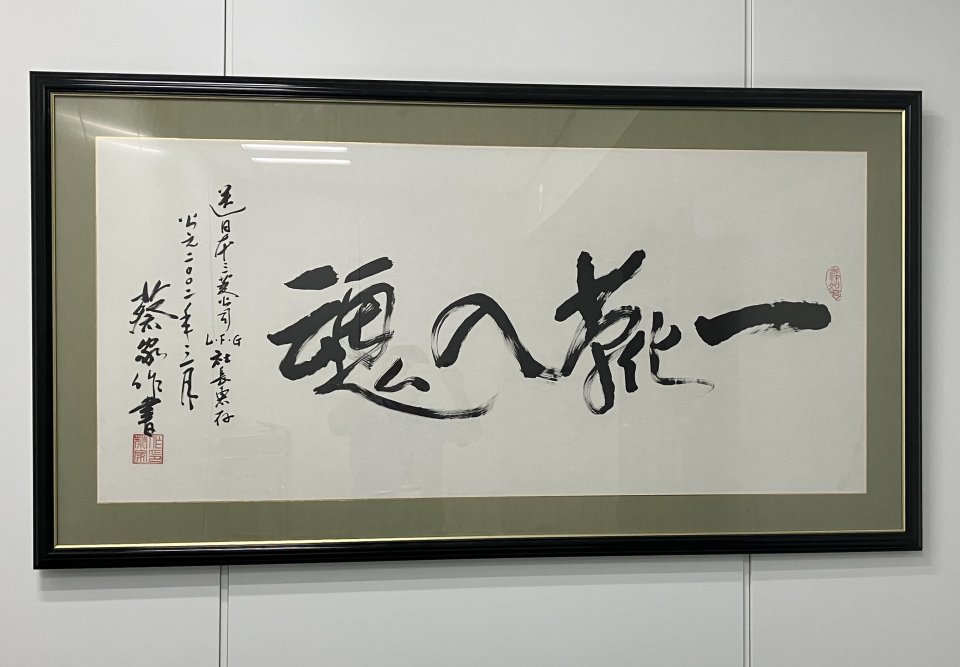 一靴入魂
送日本三菱公司L.F.G社長惠存
公元二〇〇二年三月
蔡家作書